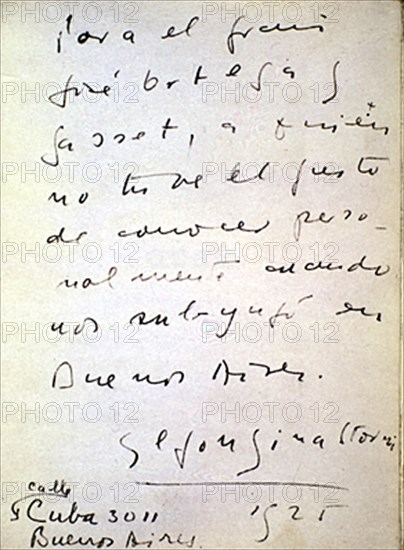 Para el gran
José Ortega y
Gasset, a quién
no tuve el gusto
de conocer perso-
nalmente cuando
nos subyugó en
Buenos Aires.
Alfonsina Storni
1925
calle
Cuba 3011
Buenos Aires.